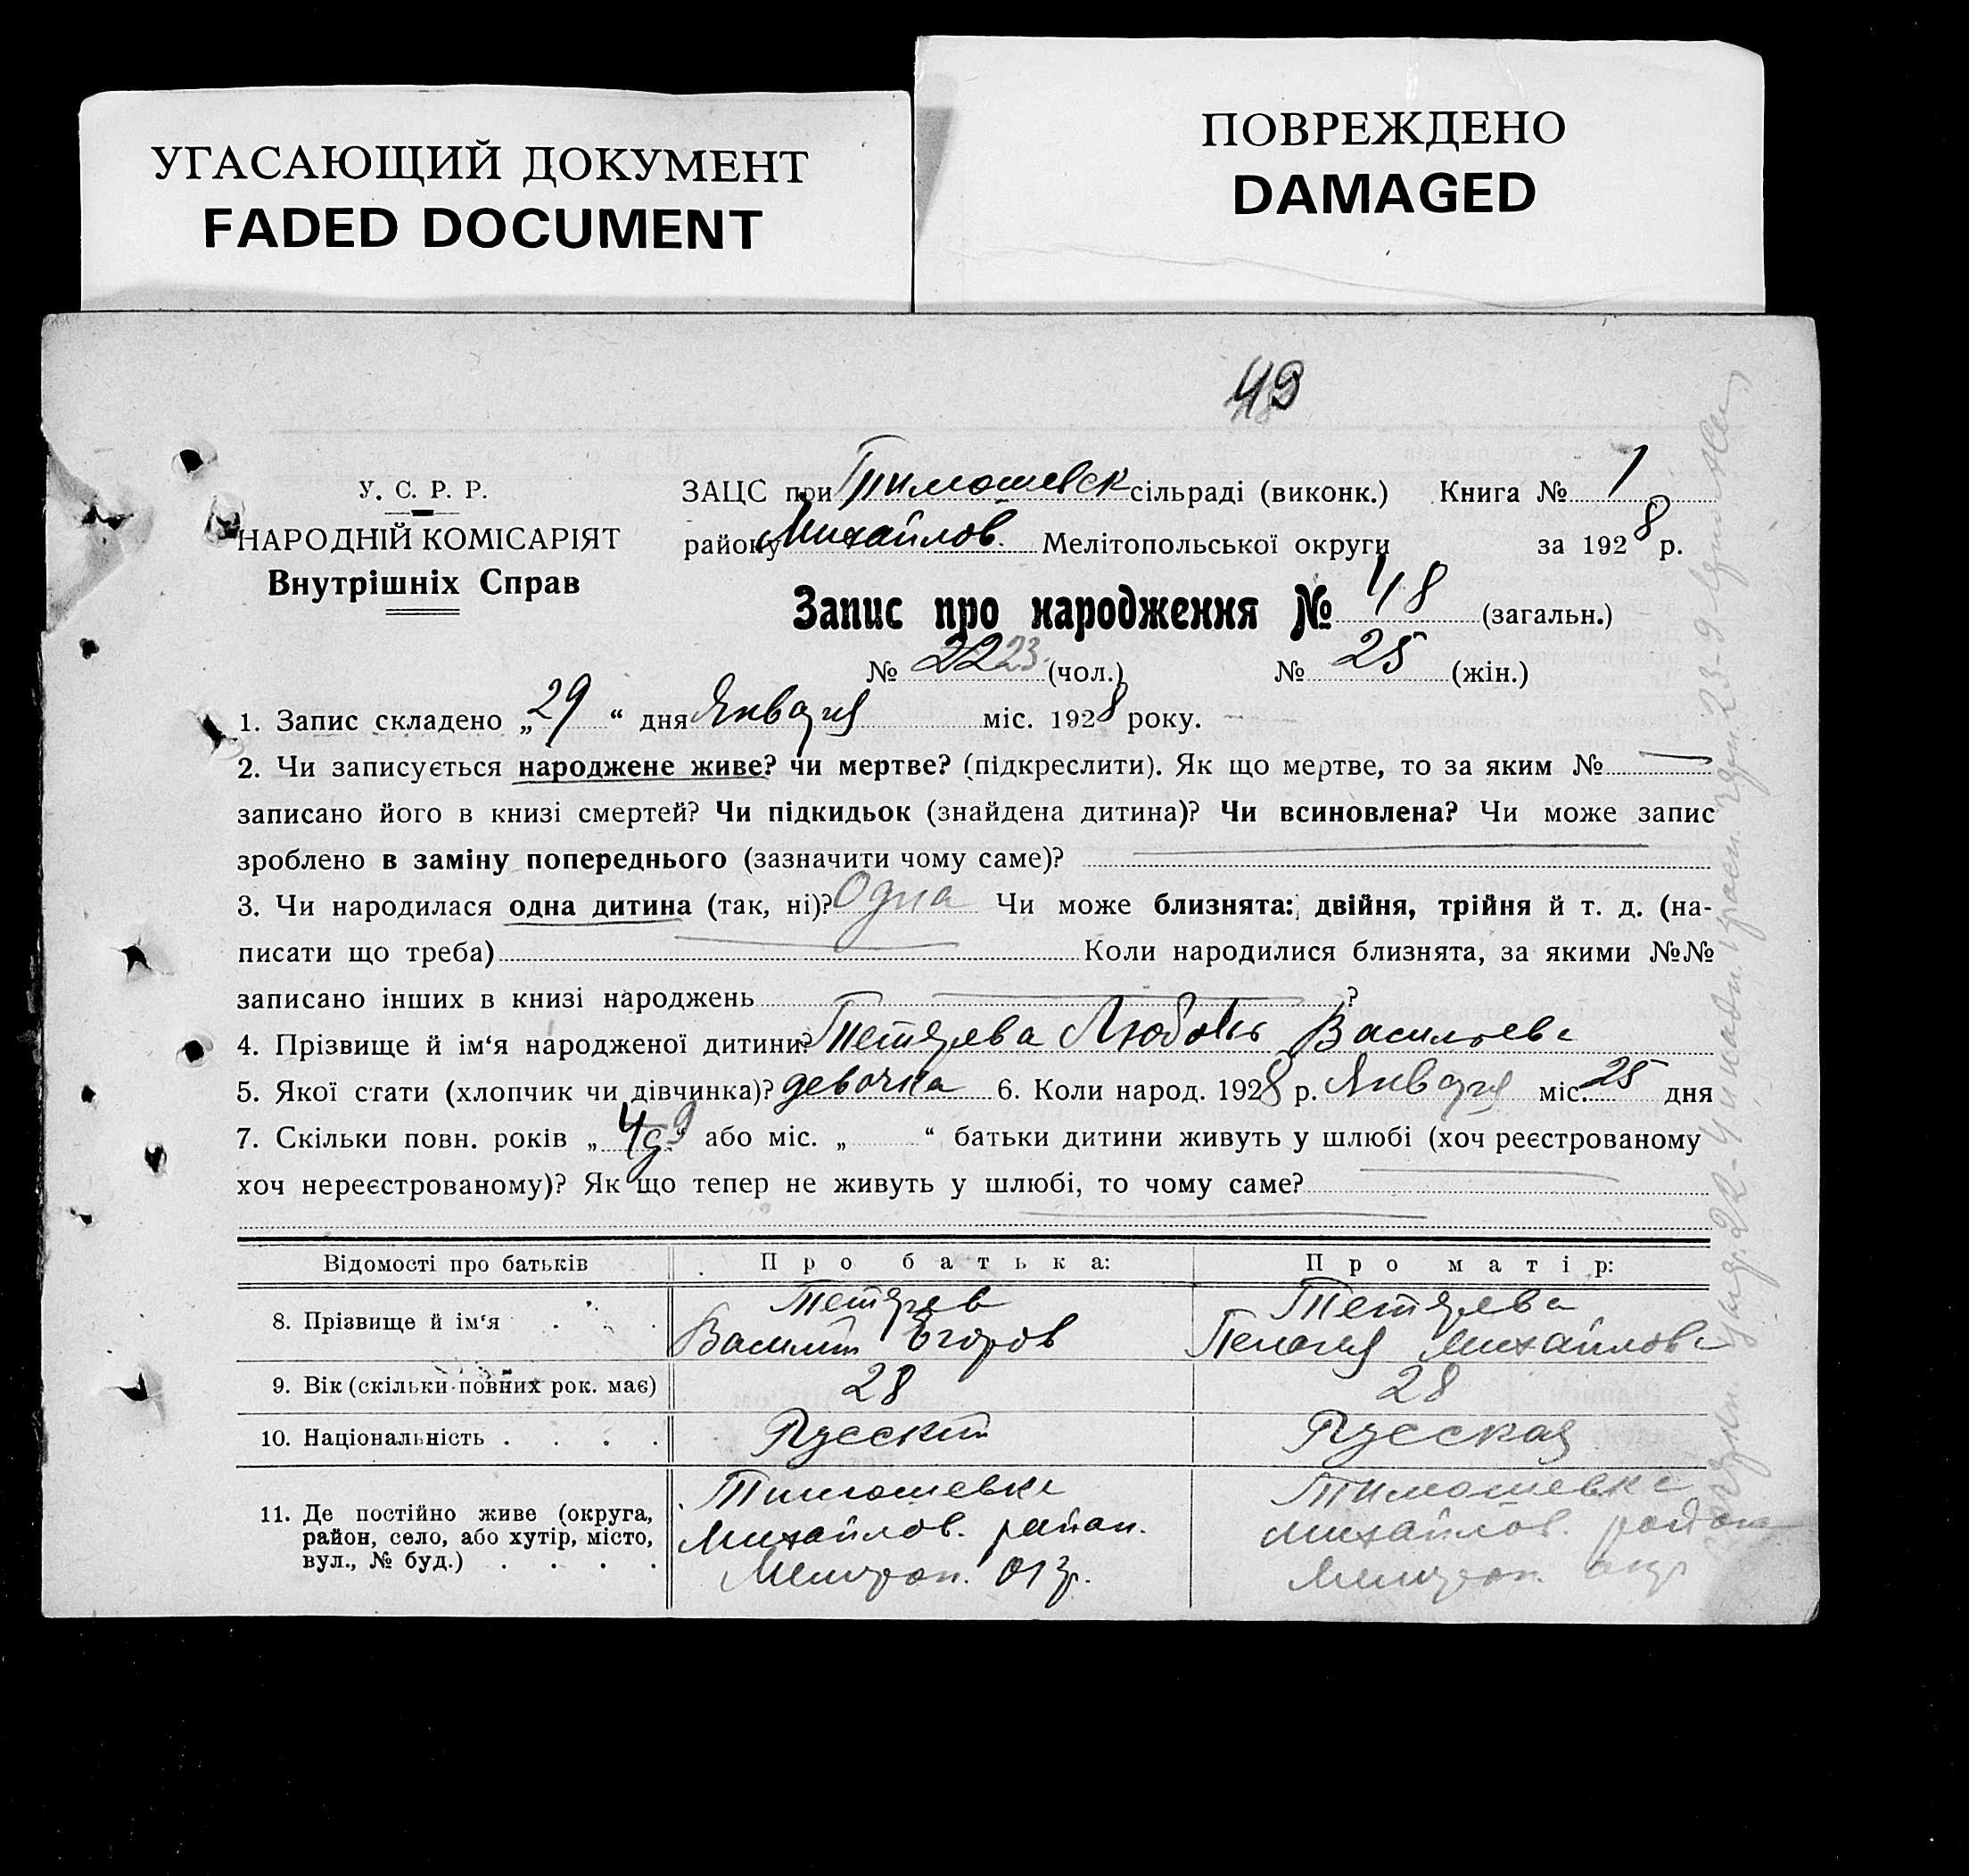 УГАСАЮЩИЙ ДОКУМЕНТ
FADED DOCUMENT
ПОВРЕЖДЕНО
DAMAGED
49
У. С. Р. Р.
НАРОДНІЙ КОМІСАРІЯТ
Внутрішніх Справ
ЗАЦС при Тимошевск сільраді (виконк.) Книга № 1
району Михайлов. Мелітопольської округи за 1928 р.
Запис про народження № 48 (загальн.)
№ 22 23. (чол.) № 25 (жін.)
1. Запис складено „29“ дня Января міс. 1928 року.
2. Чи записується народжене живе? чи мертве? (підкреслити). Як що мертве, то за яким № —
записано його в книзі смертей? Чи підкидьок (знайдена дитина)? Чи всиновлена? Чи може запис
зроблено в заміну попереднього (зазначити чому саме)?
3. Чи народилася одна дитина (так, ні)? Одна Чи може близнята: двійня, трійня й т. д. (на-
писати що треба) Коли народилися близнята, за якими №№
записано інших в книзі народжень ?
4. Прізвище й ім‘я народженої дитини? Тетярева Любовь Васильева
5. Якої стати (хлопчик чи дівчинка)? девочка 6. Коли народ. 1928 р. Января міс. 25 дня
7. Скільки повн. років „ “ або міс. „ “ батьки дитини живуть у шлюбі (хоч реєстрованому
хоч нереєстрованому)? Як що тепер не живуть у шлюбі, то чому саме?
Відомості про батьків Про батька: Про матір:
8. Прізвище й ім‘я . . . Тетярев Тетярева
Василий Егоров Пелагия Михайлова
9. Вік (скільки повних рок. має) 28 28
10. Національність . . . . Русский Русская
11. Де постійно живе (округа,
район, село, або хутір, місто,
вул., № буд.) . . . .
Тимошевка
Михайлов. район.
Мелитоп. окр.
Тимошевка
Михайлов. район
Мелитоп. окр